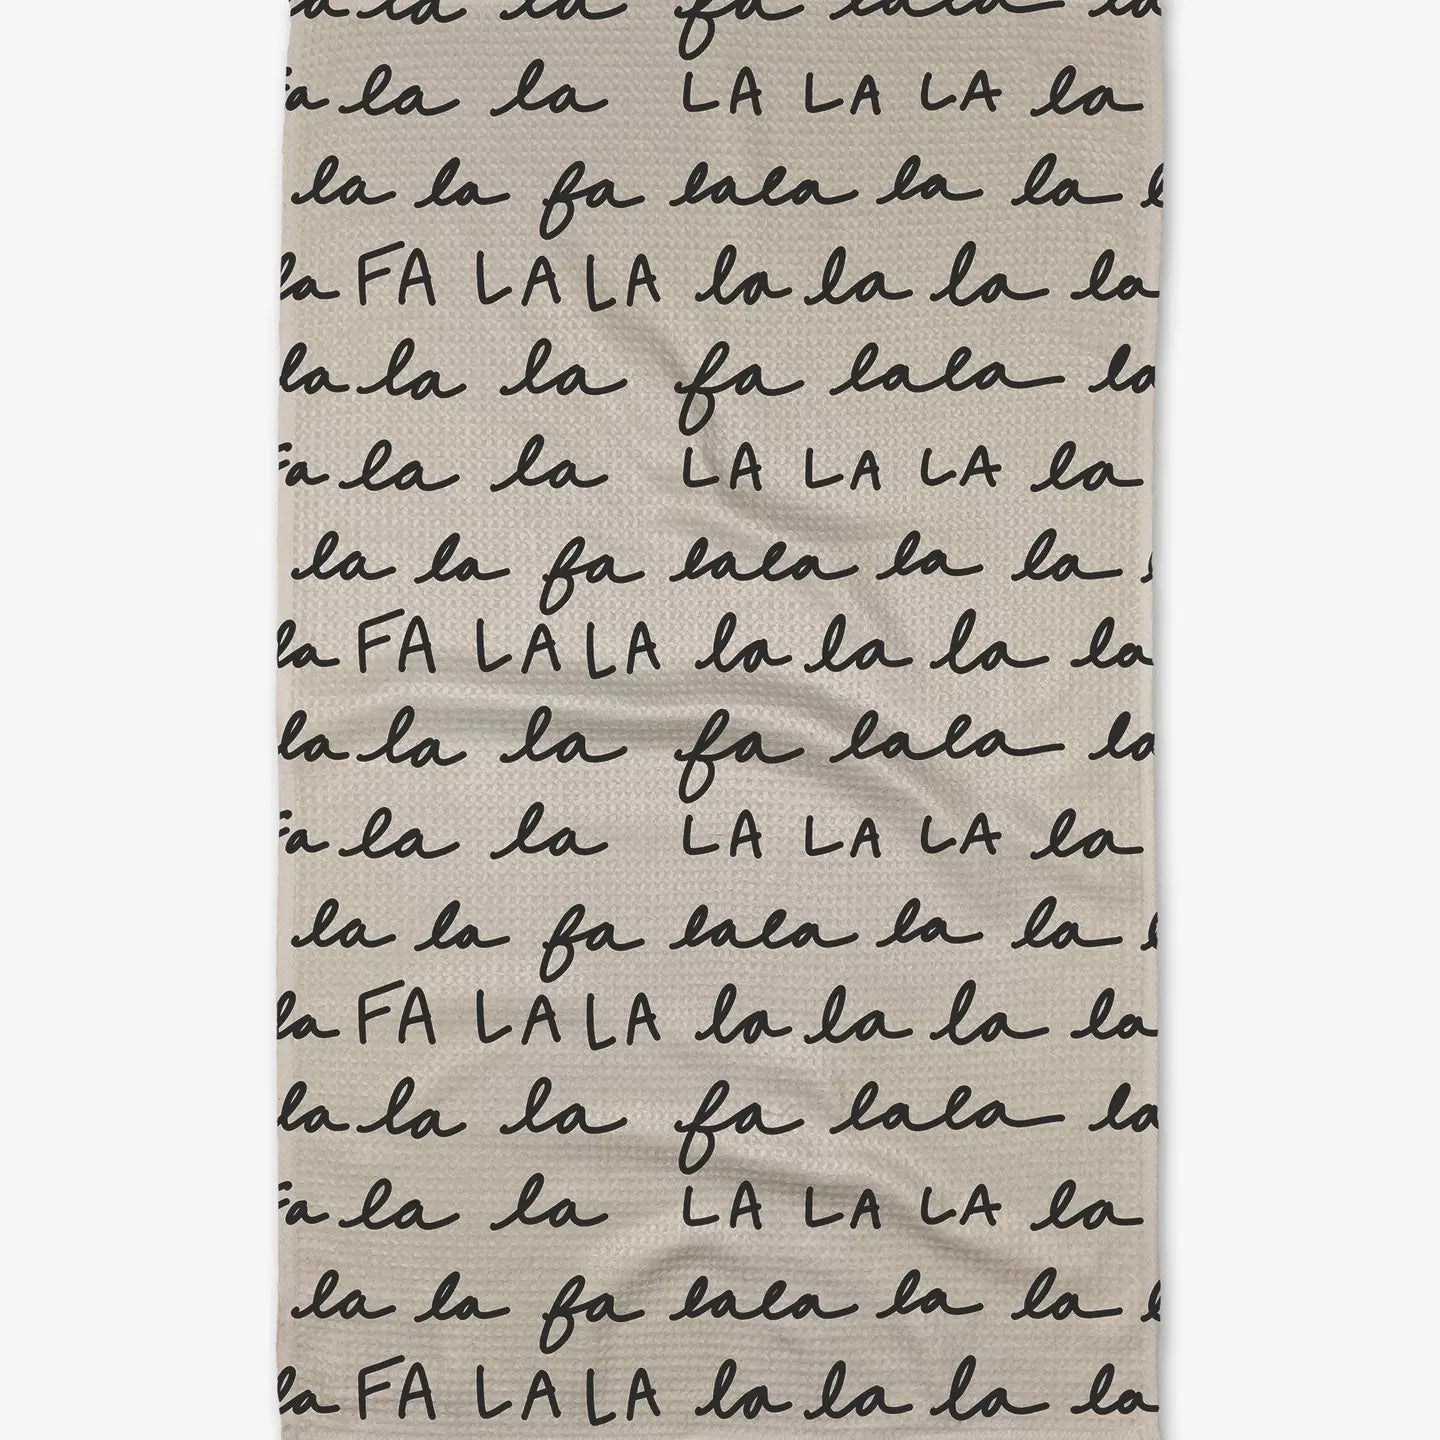 la la la fa lala la
Fa la la LA LA LA la
la la fa lala la la
la FA LA LA la la la la
la la la fa lala la
Fa la la LA LA LA la
la la fa lala la la
la FA LA LA la la la la
la la la fa lala la
Fa la la LA LA LA la
la la fa lala la la
la FA LA LA la la la la
la la la fa lala la
Fa la la LA LA LA la
la la fa lala la la
la FA LA LA la la la la